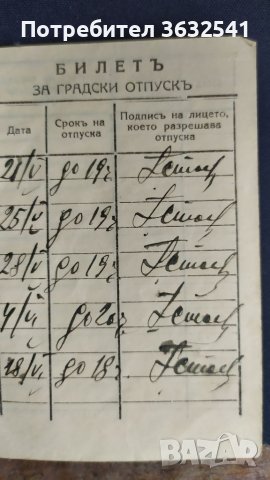 Потребител 3632541
БИЛЕТЪ
ЗА ГРАДСКИ ОТПУСКЪ
Дата
Срокъ на отпуска
Подпись на лицето, което разрешава отпуска
21/V до 19 ч
25/V до 19 ч
28/V до 19 ч
4/ до 20 ч
18/ до 18 ч
BAZAR